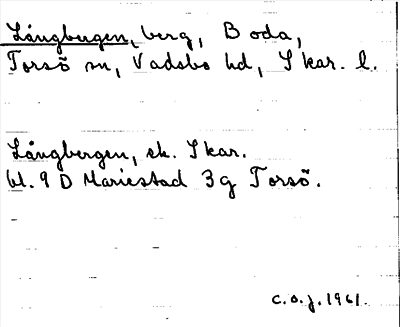 Långbergen, berg, Boda,
Torsö sn, Vadsbo hd, Skar. l.
Långbergen, ek. Skar.
bl. 9 D Mariestad 3g Torsö.
C.O.J. 1961.